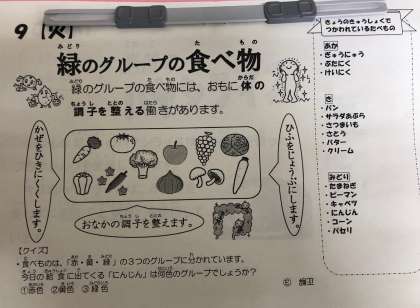 9【火】
緑のグループの食べ物
緑のグループの食べ物には、おもに体の
調子を整える働きがあります。
かぜをひきにくくします。
ひふをじょうぶにします。
おなかの調子を整えます。
【クイズ】
・食べものは、「赤・黄・緑」の3つのグループに分かれています。
今日の給食に出てくる「にんじん」は何色のグループでしょうか？
①赤色 ②黄色 ③緑色
きょうのきゅうしょくで
つかわれているたべもの
あか
・ぎゅうにゅう
・ぶたにく
・けいにく
き
・パン
・サラダあぶら
・さつまいも
・さとう
・バター
・クリーム
みどり
・たまねぎ
・ピーマン
・キャベツ
・にんじん
・コーン
・パセリ